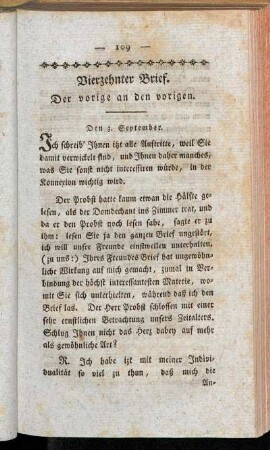 — 109 —
Vierzehnter Brief.
Der vorige an den vorigen.
Den 3. September.
Ich schreib' Ihnen itzt alle Auftritte, weil Sie
damit verwickelt sind, und Ihnen daher manches,
was Sie sonst nicht interessiren würde, in der
Konnexion wichtig wird.
Der Probst hatte kaum etwan die Hälfte ge-
lesen, als der Domdechant ins Zimmer trat, und
da er den Probst noch lesen sahe, sagte er zu
ihm: lesen Sie ja den ganzen Brief ungestört,
ich will unsre Freunde einstweilen unterhalten,
(zu uns:) Ihres Freundes Brief hat ungewöhn-
liche Wirkung auf mich gemacht, zumal in Ver-
bindung der höchst interessantesten Materie, wo-
mit Sie sich unterhielten, während daß ich den
Brief las. Der Herr Probst schlossen mit einer
sehr ernstlichen Betrachtung unsers Zeitalters.
Schlug Ihnen nicht das Herz dabey auf mehr
als gewöhnliche Art?
R. Ich habe itzt mit meiner Indivi-
dualität so viel zu thun, daß mich die
An-